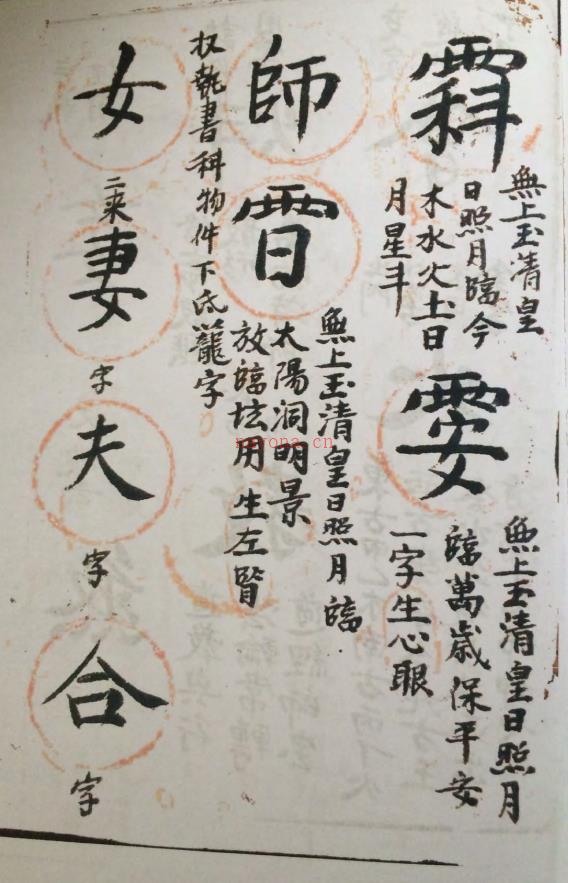 無上玉清皇
日照月臨今
木水火土日
月星斗
無上玉清皇日照月
臨萬歲保平安
一字生心眼
師
無上玉清皇日照月臨
太陽洞明景
放臨坛用生左腎
权執書科物件下底籠字
女
二来
妻
字
夫
字
合
字
nayona.cn